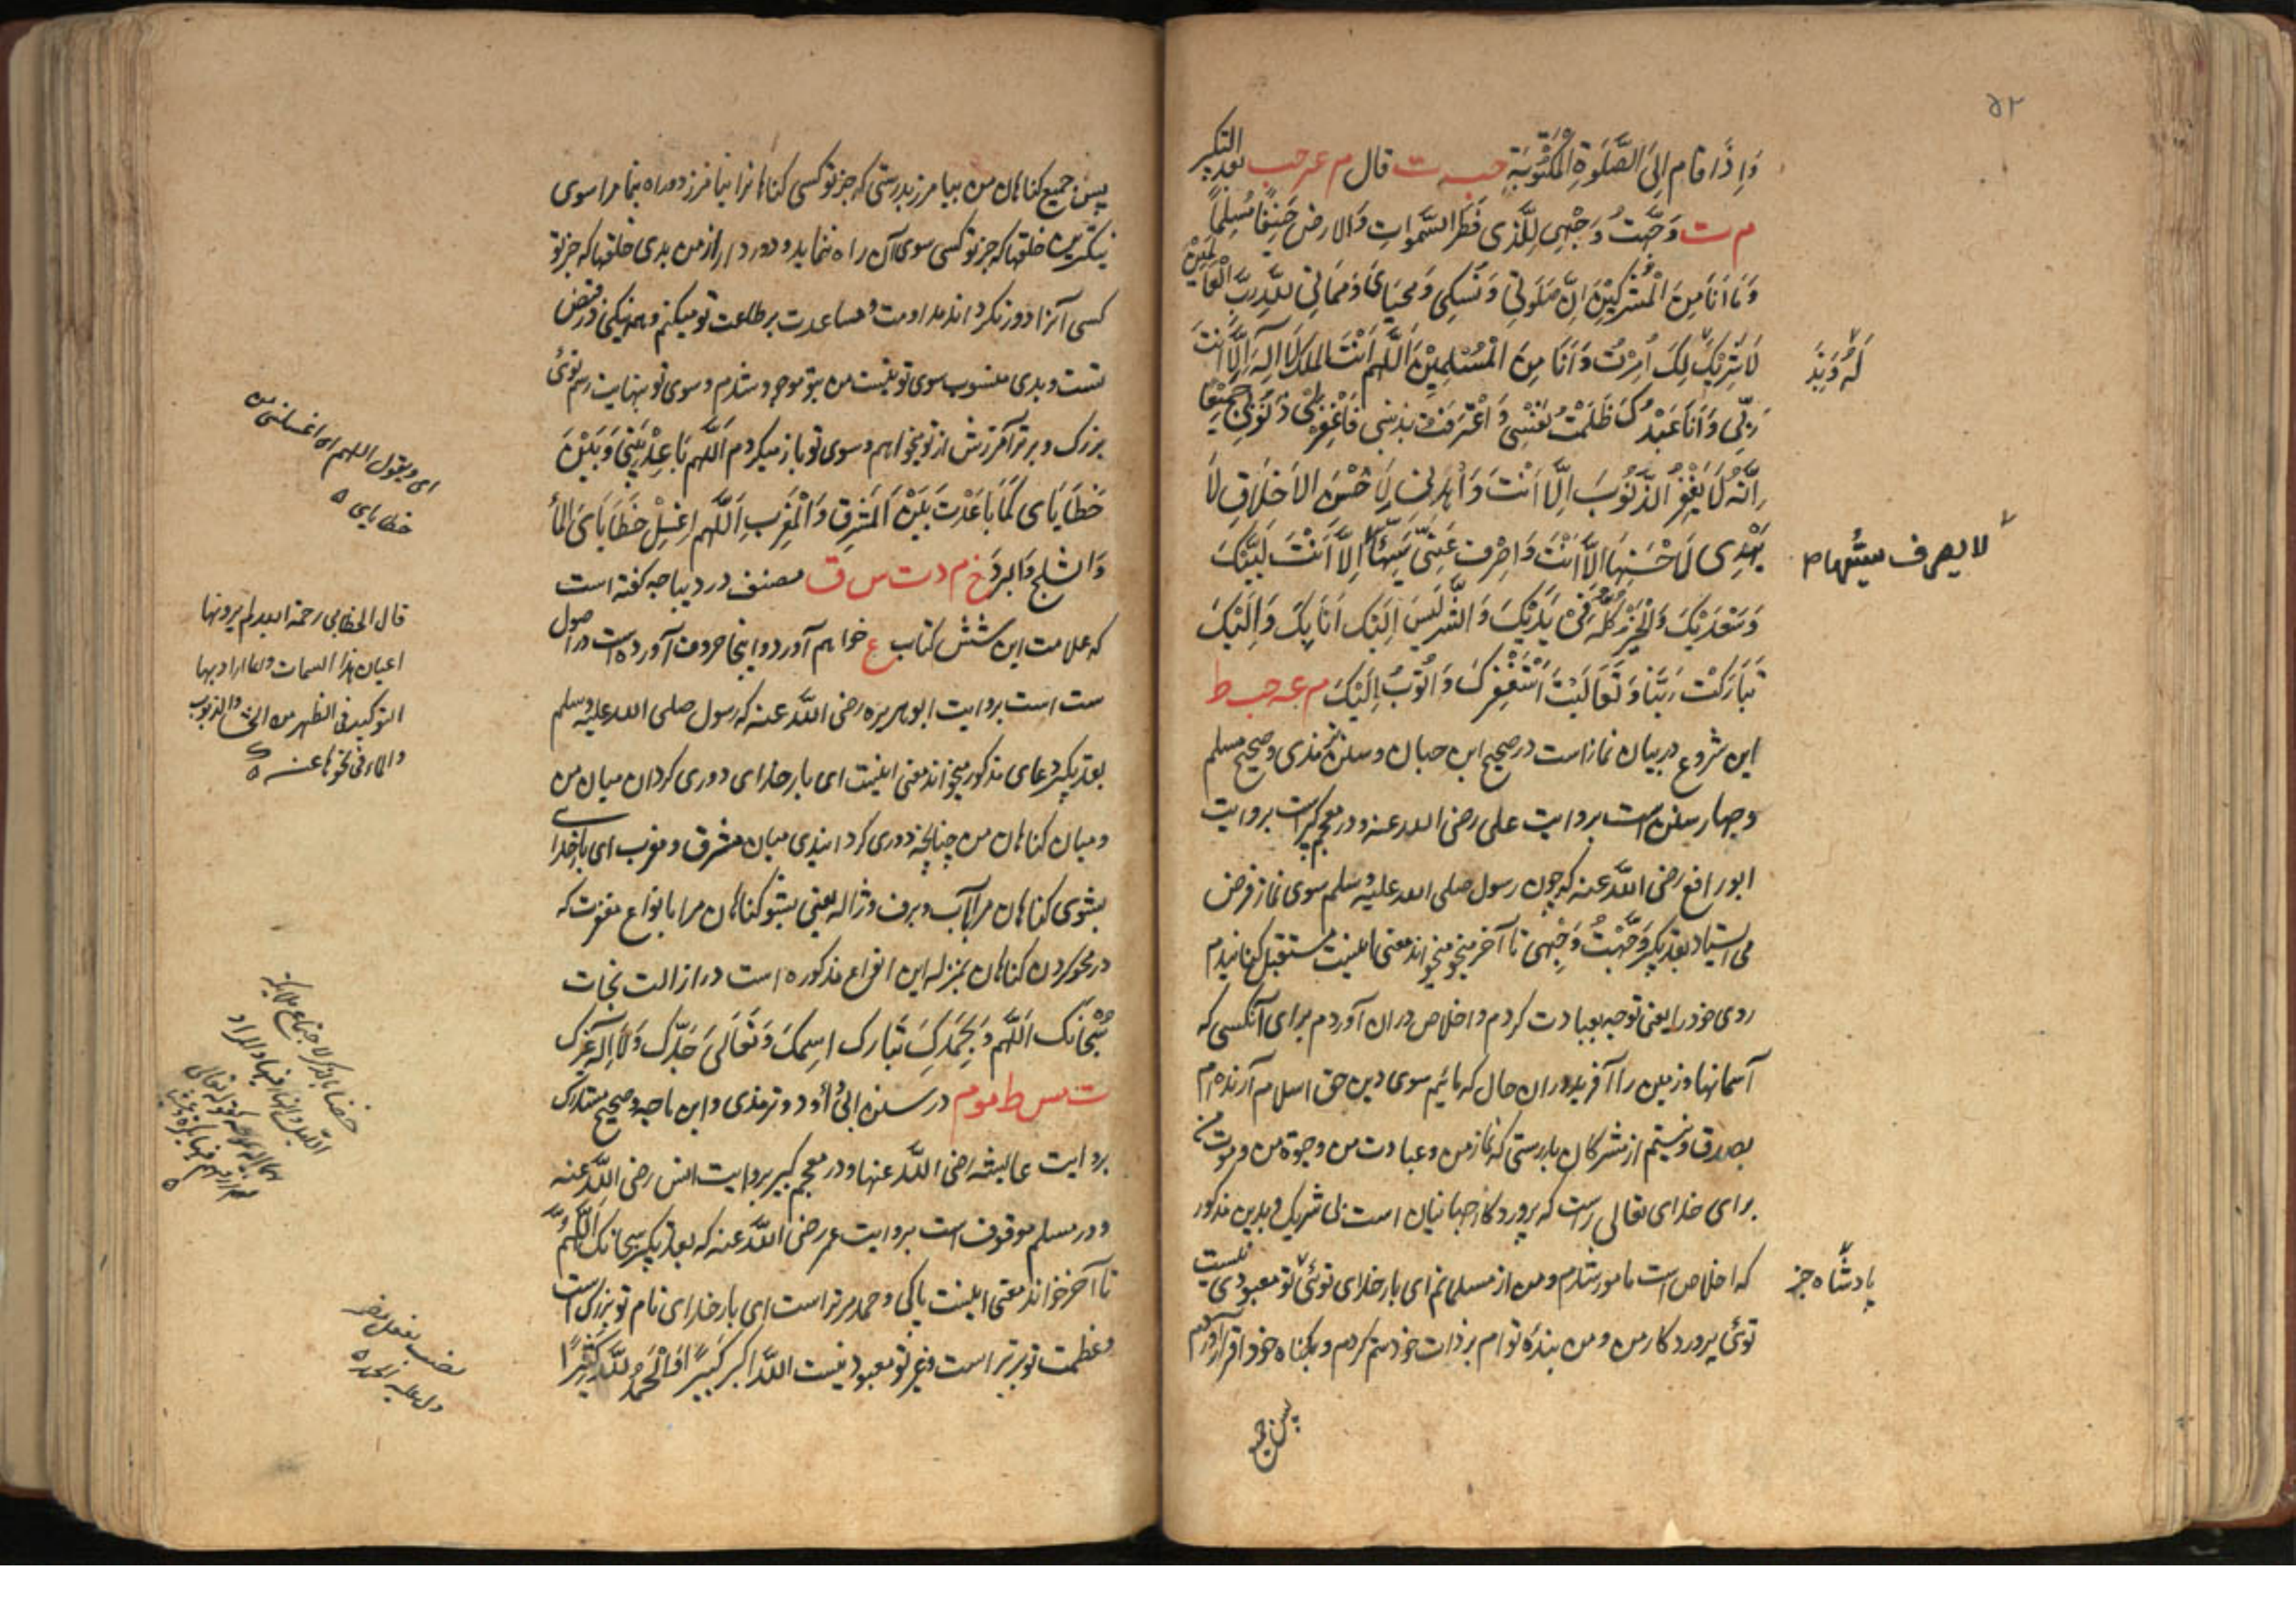 ۵۲
وَاِذَا قَامَ اِلَى الصَّلَوةِ الْمَكْتُوْبَةِ حب ت قال م عه حب بعد التكبير
م ت وَجَّهْتُ وَجْهِىَ لِلَّذِى فَطَرَ السَّمٰوَاتِ وَالارضَ حَنِيْفًا مُسْلِمًا
وَمَا اَنَا مِنَ الْمُشْرِكِيْنَ اِنَّ صَلَوتِى وَنُسُكِى وَمَحْيَاىَ وَمَمَاتِى لِلّٰهِ رَبِّ الْعَالَمِيْنَ
لَا شَرِيْكَ لَهُ وَبِذَلِكَ اُمِرْتُ وَاَنَا مِنَ الْمُسْلِمِيْنَ اَللّٰهُمَّ اَنْتَ الملكُ لَا اِلٰهَ اِلَّا اَنْتَ
رَبِّى وَاَنَا عَبْدُكَ ظَلَمْتُ نَفْسِى وَاعْتَرَفْتُ بِذَنْبِى فَاغْفِرْلِى ذُنُوْبِى جَمِيْعًا
اِنَّهُ لَا يَغْفِرُ الذُّنُوْبَ اِلَّا اَنْتَ وَاهْدِنِى لِاَحْسَنِ الاَخْلَاقِ لَا
يَهْدِى لِاَحْسَنِهَا اِلَّا اَنْتَ وَاصْرِفْ عَنِّى سَيِّئَهَا اِلَّا اَنْتَ لَبَّيْكَ
لا يصرف سيئها م
وَسَعْدَيْكَ وَالْخَيْرُ كُلُّهُ فِىْ يَدَيْكَ وَالشَّرُّ لَيْسَ اِلَيْكَ اَنَا بِكَ وَاِلَيْكَ
تَبَارَكْتَ رَبَّنَا وَتَعَالَيْتَ اَسْتَغْفِرُكَ وَاَتُوْبُ اِلَيْكَ م عه حب ط
این شروع در بیان نماز است در صحیح ابن حبان و سنن ترمذی و صحیح مسلم
و چهار سنن است بروایت علی رضی الله عنه و در معجم کبیر است بروایت
ابورافع رضی اللّٰه عنه که چون رسول صلی الله علیه وسلم سوی نماز فرض
می استاد بعد تکبیر وَجَّهْتُ وَجْهِى تا آخر میخواند معنی اینست مستقبل گردانیدم
روی خود را یعنی توجه بعبادت کردم و اخلاص در ان آوردم برای آنکسی که
آسمانها و زمین را آفرید در ان حال که مائلم سوی دین حق اسلام آرنده ام
بصدق و نیستم از مشرکان بدرستی که نماز من و عبادت من و حیوة من و موت من
برای خدای تعالی راست که پروردکار جهانیان است بی شریک و بدین مذکور
که اخلاص است مامور شدم و من از مسلمانم ای بار خدای توئی تو معبودی نیست
پادشاه جز
توئی پروردکار من و من بنده توام بر ذات خود ستم کردم و بکناه خود اقرار آوردم
پس جمیع
پس جمیع کناهان من بیامرز بدرستی که جز تو کسی کناهانرا نیامرزد و راه بنما مرا سوی
نیکترین خلقها که جز تو کسی سوی آن راه ننماید و دور دار از من بدی خلقها که جز تو
کسی آنرا دور نکرداند مداومت و مساعدت بر طاعت تو میکنم و همه نیکی در قبض
تست و بدی منسوب سوی تو نیست من بتو موجود شدم و سوی تو نهایت رسم توئی
بزرک و برتر آمرزش از تو میخواهم و سوی تو باز میکردم اَللّٰهُمَّ بَاعِدْ بَيْنِىْ وَبَيْنَ
خَطَايَاىَ كَمَا بَاعَدْتَ بَيْنَ الْمَشْرِقِ وَالْمَغْرِبِ اَللّٰهُمَّ اغْسِلْ خَطَايَاىَ بالمآء
وَالثلج وَالْبَرَدِ خ م د ت س ق مصنف در دیباجه کفته است
که علامت این شش کتاب ع خواهم آورد و اینجا حروف آورده است در اصول
ست است بروایت ابوهریره رضی اللّٰه عنه که رسول صلی الله علیه وسلم
بعد تکبیر دعای مذکور میخواند معنی اینست ای بار خدای دوری کردان میان من
و میان کناهان من چنانچه دوری کردانیدی میان مشرق و مغرب ای بار خدای
بشوی کناهان مرا بآب و برف و ژاله یعنی بشو کناهان مرا بانواع مغفرت که
در محو کردن کناهان بمنزله این انواع مذکوره است در ازالت نجات
سُبْحَانَكَ اللّٰهُمَّ وَبِحَمْدِكَ تَبَارَكَ اسْمُكَ وَتَعَالَى جَدُّكَ وَلَا اِلٰهَ غَيْرُكَ
ت مس ط موم در سنن ابی داود و ترمذی و ابن ماجه و صحیح مستدرک
بروایت عایشه رضی اللّٰه عنها و در معجم کبیر بروایت انس رضی اللّٰه عنه
و در مسلم موقوف است بروایت عمر رضی اللّٰه عنه که بعد تکبیر سبحانک اللّٰهُمَّ
تا آخر خواند معنی اینست پاکی و حمد مر تراست ای بار خدای نام تو بزرک است
و عظمت تو برتر است و غیر تو معبود نیست اللّٰه اکبر كَبِيْرًا وَالْحَمْدُ لِلّٰهِ كَثِيْرًا
ای ویقول اللهم اغسلنی من
خطایای ه
قال الخطابی رحمة الله لم یرد بها
اعیان هذا المسمات وانما اراد بها
التوکید فی التطهیر من الخطا والذنوب
نصب بفعل مضمر
دل علیه